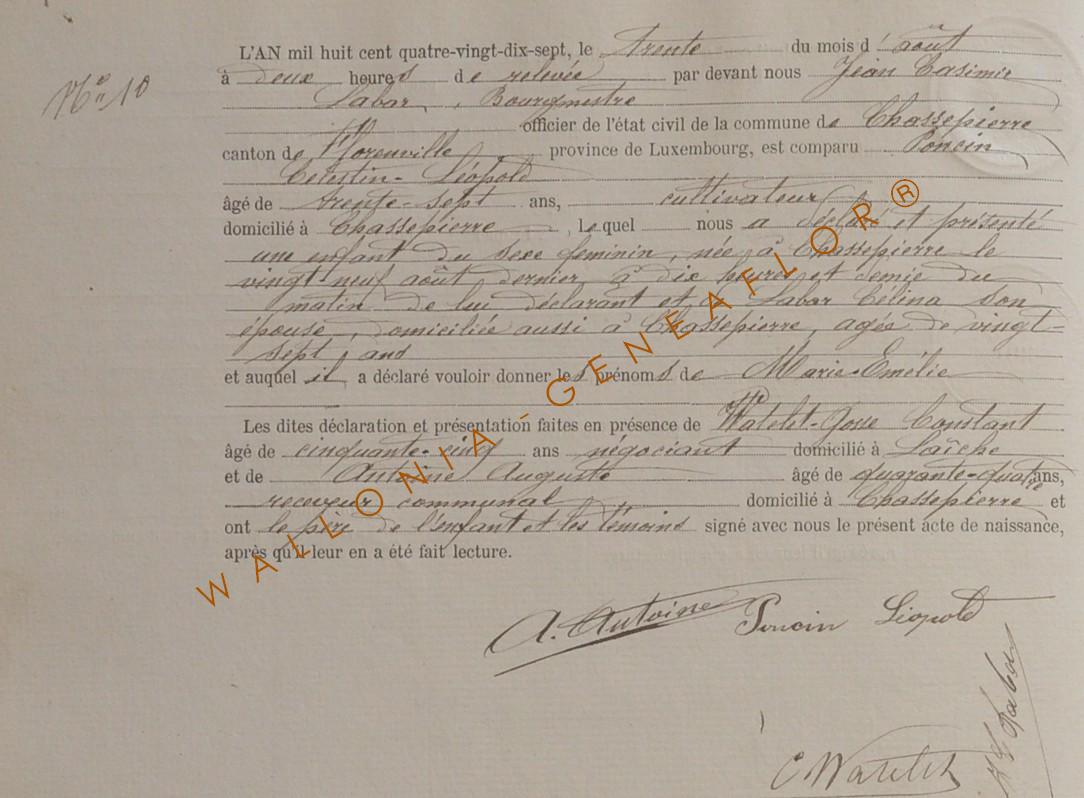 N° 10
L'AN mil huit cent quatre-vingt-dix-sept, le trente du mois d'août
à deux heures de relevée par devant nous Jean Casimir
Labar, Bourgmestre
officier de l'état civil de la commune de Chassepierre
canton de Florenville province de Luxembourg, est comparu Poncin
Célestin-Léopold
âgé de trente-sept ans, cultivateur
domicilié à Chassepierre, Lequel nous a déclaré et présenté
une enfant du sexe feminin, née à Chassepierre le
vingt-neuf août dernier à dix heures et demie du
matin de lui déclarant et de Labar Célina son
épouse, domiciliée aussi à Chassepierre, agée de vingt-
sept ans
et auquel il a déclaré vouloir donner les prénoms de Marie-Emélie
Les dites déclaration et présentation faites en présence de Watelet-Gosse Constant
âgé de cinquante-cinq ans négociant domicilié à Laîche
et de Antoine Auguste âgé de quarante-quatre ans,
receveur communal domicilié à Chassepierre et
ont le père de l'enfant et les témoins signé avec nous le présent acte de naissance,
après qu'il leur en a été fait lecture.
A. Antoine Poncin Léopold
C Watelet
Labar
WALLONIA - GENEAFLOR ®